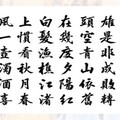 雄是非成敗轉
頭空青山依舊
在幾度夕陽紅
白髮漁樵江渚
上慣看秋月春
風一壺濁酒喜